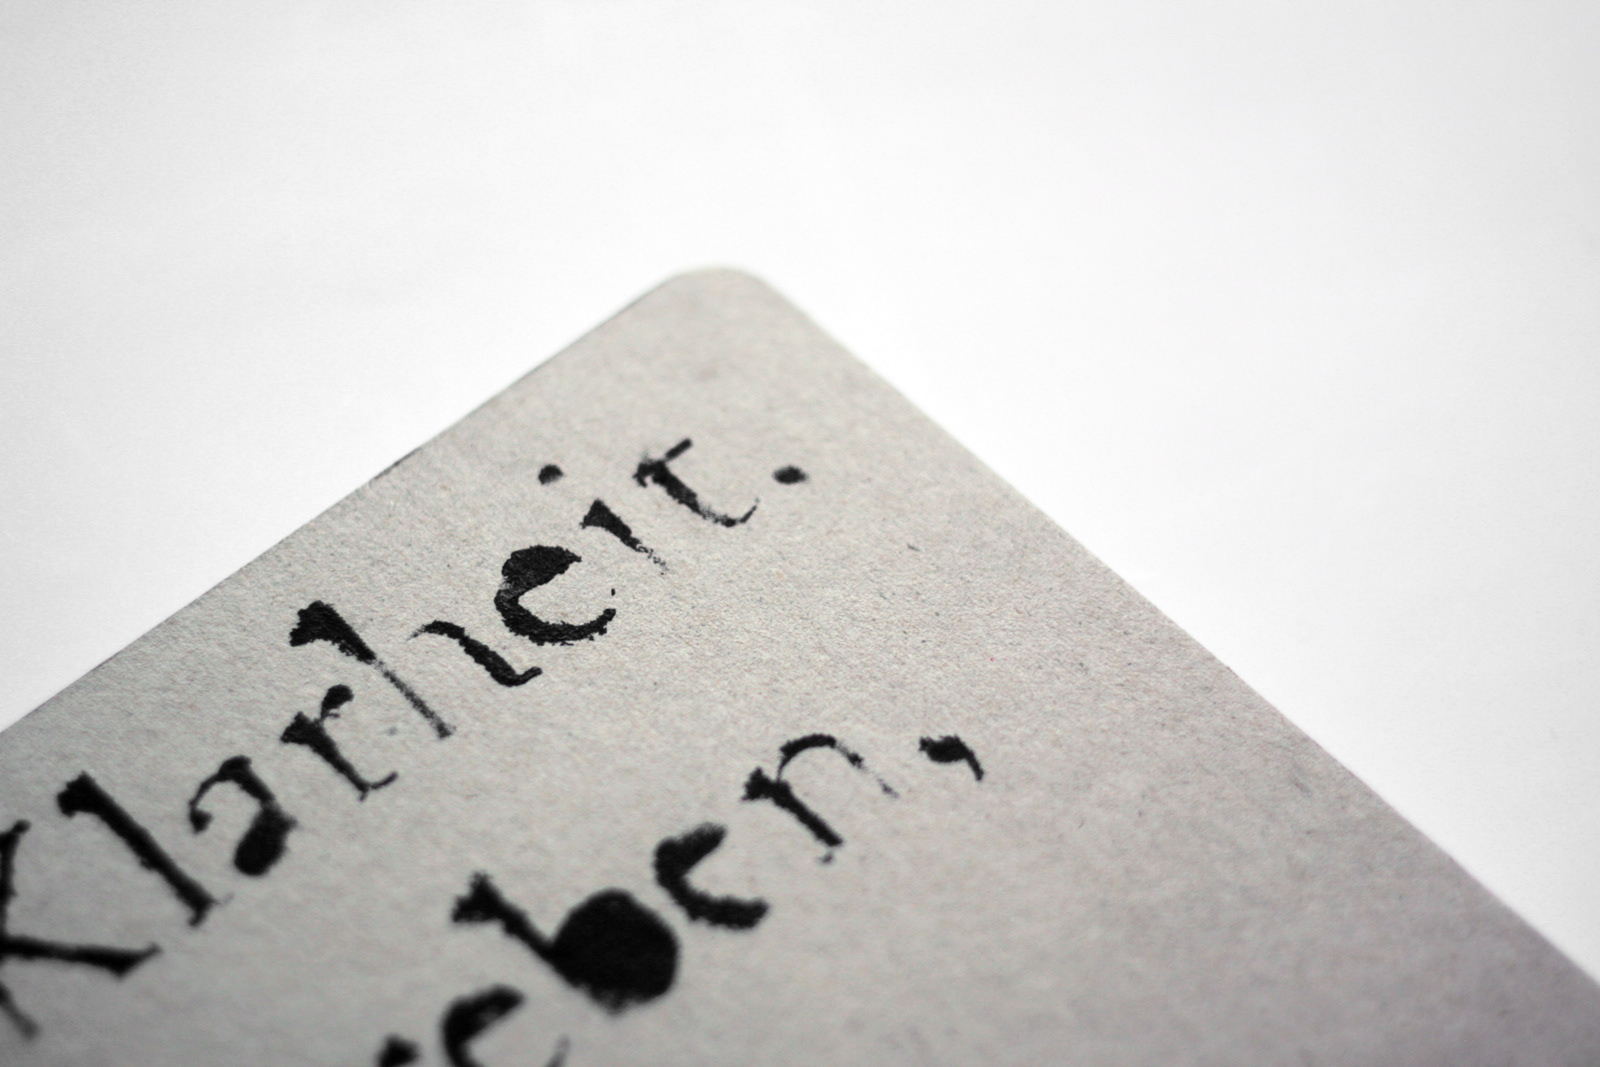 Klarheit.
eben,